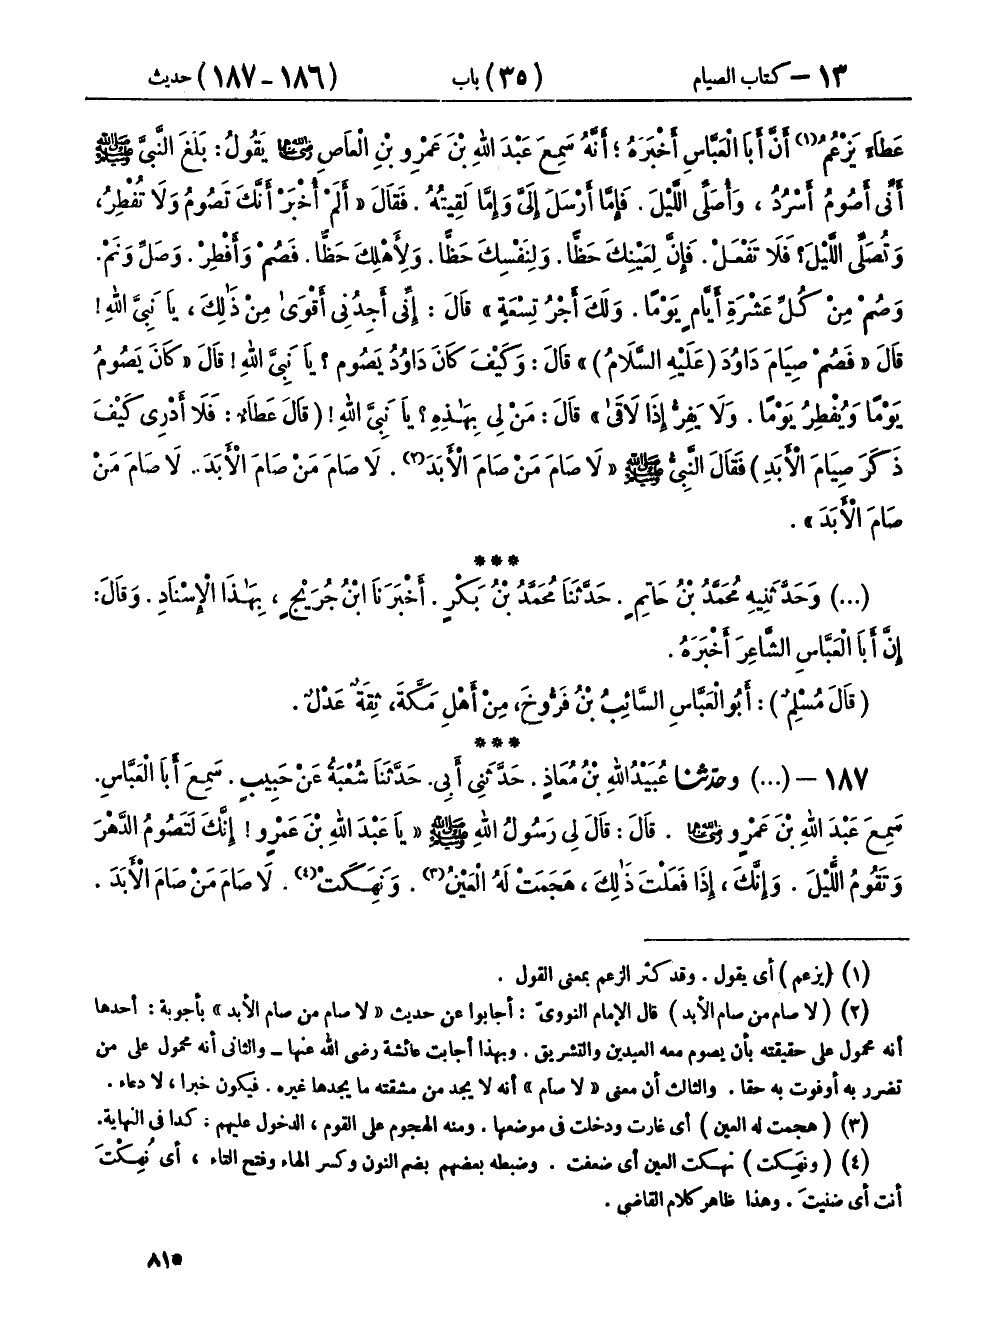 ١٣ – كتاب الصيام (٣٥) باب (١٨٦ – ١٨٧) حديث
عَطَاءً يَزْعُمُ(١) أَنَّ أَبَا الْعَبَّاسِ أَخْبَرَهُ ؛ أَنَّهُ سَمِعَ عَبْدَ اللهِ بْنَ عَمْرِو بْنِ الْعَاصِ رضي الله عنهما يَقُولُ : بَلَغَ النَّبِيَّ ﷺ
أَنِّي أَصُومُ أَسْرُدُ ، وَأُصَلِّي اللَّيْلَ . فَإِمَّا أَرْسَلَ إِلَيَّ وَإِمَّا لَقِيتُهُ . فَقَالَ « أَلَمْ أُخْبَرْ أَنَّكَ تَصُومُ وَلَا تُفْطِرُ ،
وَتُصَلِّي اللَّيْلَ ؟ فَلَا تَفْعَلْ . فَإِنَّ لِعَيْنِكَ حَظًّا . وَلِنَفْسِكَ حَظًّا . وَلِأَهْلِكَ حَظًّا . فَصُمْ وَأَفْطِرْ . وَصَلِّ وَنَمْ .
وَصُمْ مِنْ كُلِّ عَشْرَةِ أَيَّامٍ يَوْمًا . وَلَكَ أَجْرُ تِسْعَةٍ » قَالَ : إِنِّي أَجِدُنِي أَقْوَى مِنْ ذَٰلِكَ ، يَا نَبِيَّ اللهِ !
قَالَ « فَصُمْ صِيَامَ دَاوُدَ (عَلَيْهِ السَّلَامُ) » قَالَ : وَكَيْفَ كَانَ دَاوُدُ يَصُومُ ؟ يَا نَبِيَّ اللهِ ! قَالَ « كَانَ يَصُومُ
يَوْمًا وَيُفْطِرُ يَوْمًا . وَلَا يَفِرُّ إِذَا لَاقَى » قَالَ : مَنْ لِي بِهَٰذِهِ ؟ يَا نَبِيَّ اللهِ ! ( قَالَ عَطَاءٌ : فَلَا أَدْرِي كَيْفَ
ذَكَرَ صِيَامَ الْأَبَدِ ) فَقَالَ النَّبِيُّ ﷺ « لَا صَامَ مَنْ صَامَ الْأَبَدَ(٢) . لَا صَامَ مَنْ صَامَ الْأَبَدَ .. لَا صَامَ مَنْ
صَامَ الْأَبَدَ » .
***
(...) وَحَدَّثَنِيهِ مُحَمَّدُ بْنُ حَاتِمٍ . حَدَّثَنَا مُحَمَّدُ بْنُ بَكْرٍ . أَخْبَرَنَا ابْنُ جُرَيْجٍ ، بِهَٰذَا الْإِسْنَادِ . وَقَالَ :
إِنَّ أَبَا الْعَبَّاسِ الشَّاعِرَ أَخْبَرَهُ .
( قَالَ مُسْلِمٌ ) : أَبُو الْعَبَّاسِ السَّائِبُ بْنُ فَرُّوخَ ، مِنْ أَهْلِ مَكَّةَ ، ثِقَةٌ عَدْلٌ .
***
١٨٧ – (...) وحدثنا عُبَيْدُ اللهِ بْنُ مُعَاذٍ . حَدَّثَنِي أَبِي . حَدَّثَنَا شُعْبَةُ عَنْ حَبِيبٍ . سَمِعَ أَبَا الْعَبَّاسِ .
سَمِعَ عَبْدَ اللهِ بْنَ عَمْرٍو رضي الله عنهما . قَالَ : قَالَ لِي رَسُولُ اللهِ ﷺ « يَا عَبْدَ اللهِ بْنَ عَمْرٍو ! إِنَّكَ لَتَصُومُ الدَّهْرَ
وَتَقُومُ اللَّيْلَ . وَإِنَّكَ ، إِذَا فَعَلْتَ ذَٰلِكَ ، هَجَمَتْ لَهُ الْعَيْنُ(٣) . وَنَهَكَتْ(٤) . لَا صَامَ مَنْ صَامَ الْأَبَدَ .
(١) (يزعم) أي يقول . وقد كثر الزعم بمعنى القول .
(٢) ( لا صام من صام الأبد ) قال الإمام النوويّ : أجابوا عن حديث « لا صام من صام الأبد » بأجوبة : أحدها
أنه محمول على حقيقته بأن يصوم معه العيدين والتشريق . وبهذا أجابت عائشة رضى الله عنها – والثانى أنه محمول على من
تضرر به أوفوت به حقا . والثالث أن معنى « لا صام » أنه لا يجد من مشقته ما يجدها غيره . فيكون خبرا ، لا دعاء .
(٣) ( هجمت له العين ) أى غارت ودخلت فى موضعها . ومنه الهجوم على القوم ، الدخول عليهم : كدا فى النهاية .
(٤) ( ونَهَكت ) نهكت العين أى ضعفت . وضبطه بعضهم بضم النون وكسر الهاء وفتح التاء ، أى نُهِكْتَ
أنت أى ضنيتَ . وهذا ظاهر كلام القاضى .
٨١٥